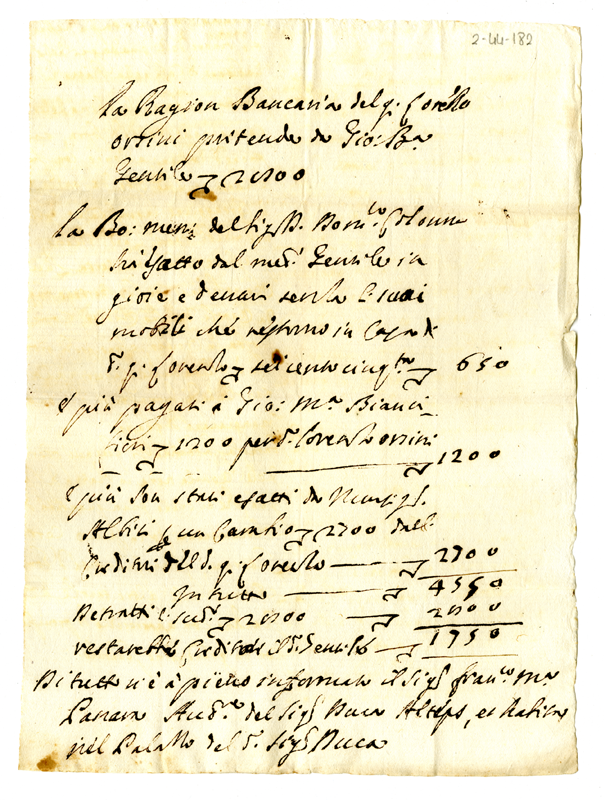 2-44-182
La Ragion Bancaria del q. Corello
orsini pretende da Gio: Ba
Gentile 2800
La Bo: mem: del Sig D. Dom.co Colonna
ha fatto dal med. Gentile in
gioie e denari senza li suoi
mobili che restorno in Casa di
d. q. Corello seicento cinq.ta 650
e più pagati à Gio: Ma Bianci
fiori 1200 per d. Corello orsini
1200
e più son stati esatti da Monsig.
Altiti un Cambio 2700 dalli
Creditori del d. q. Corello 2700
In tutto 4550
Detratti scudi 2800 2800
restarebbe Creditore il d. Gentile 1750
Di tutto n'è à pieno informato il Sig. Fran.co Ma
Aud.re del Sig Duca Altéps, et habita
nel Palazzo del d. Sig Duca